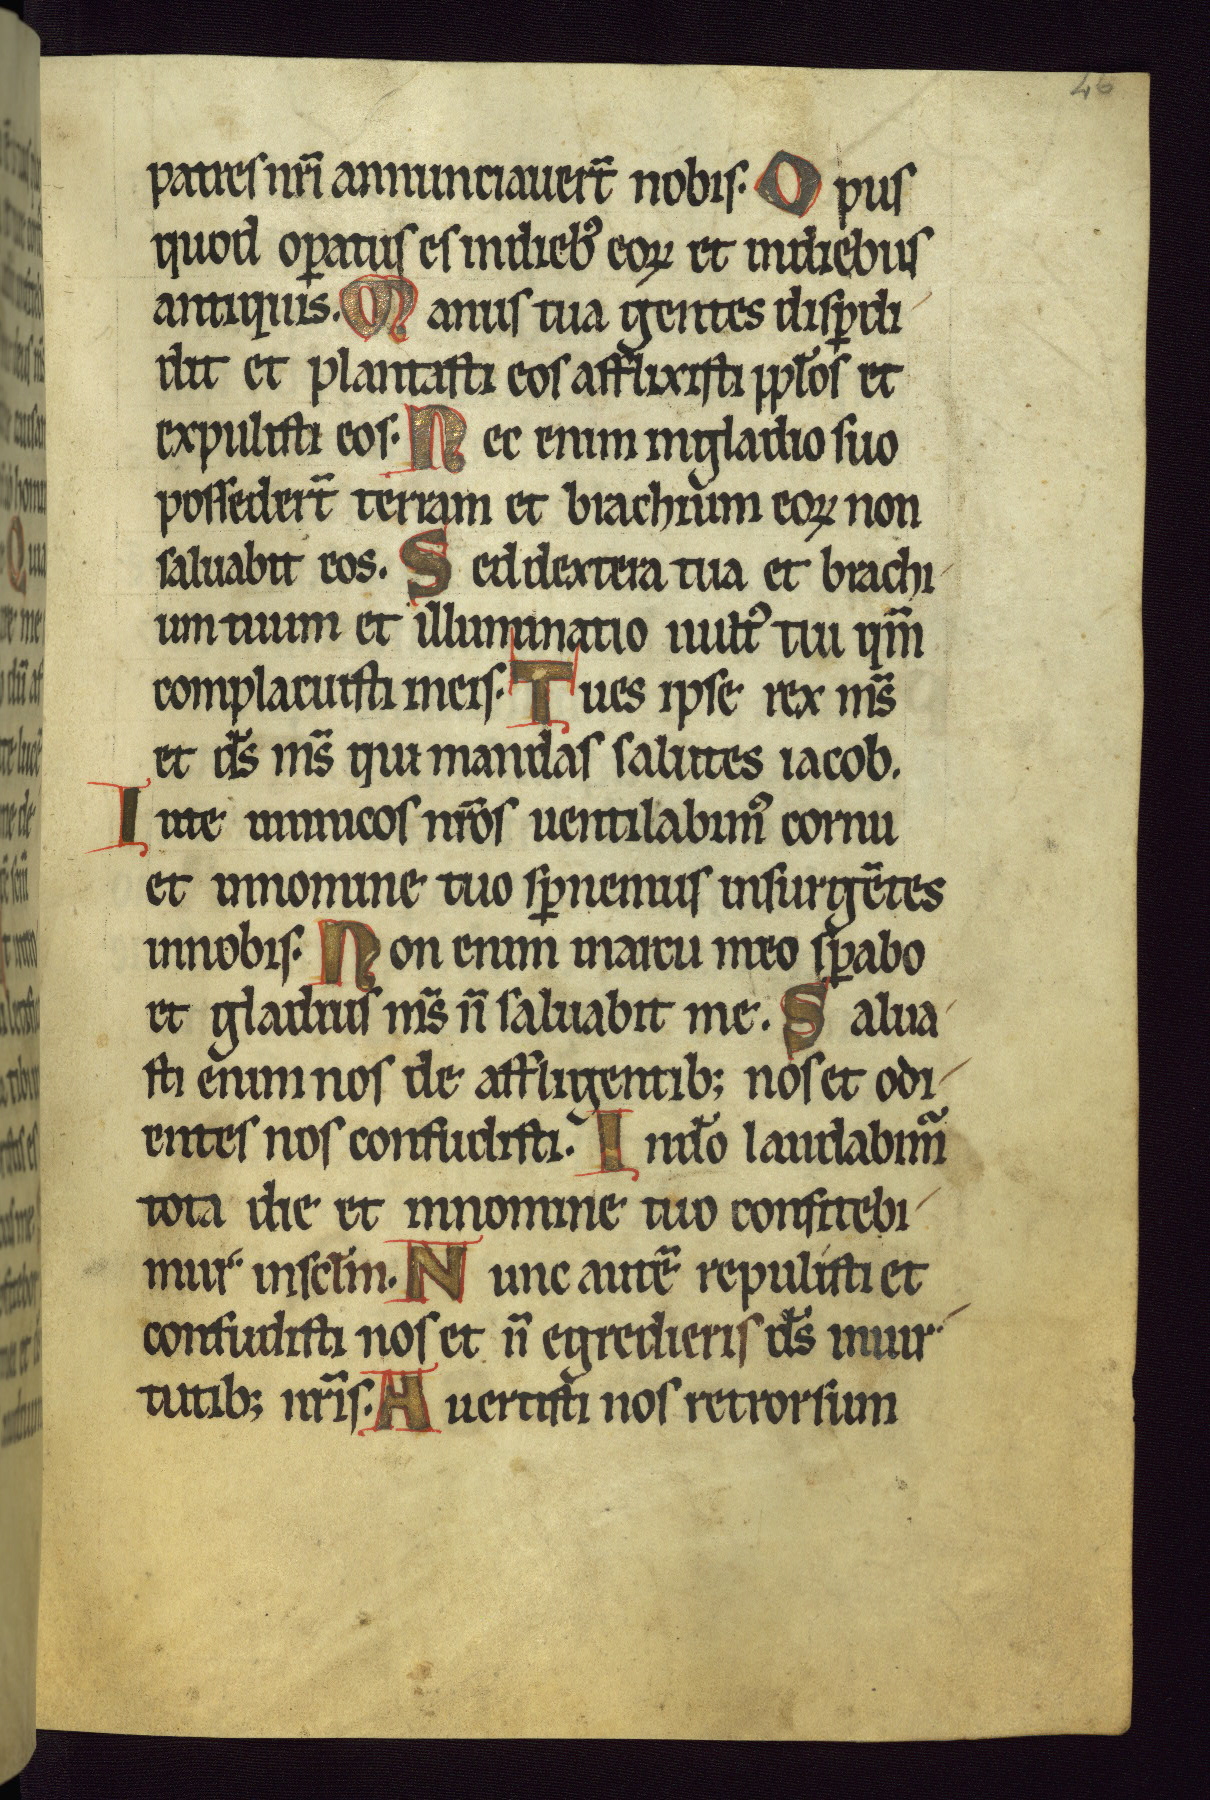 46
patres nr̄i annunciauert̄ nobis. Opus
quod op̄atus es indieb᷒ eoꝝ et indiebus
antiquis. Manus tua gentes disꝑdi
dit et plantasti eos afflixisti pp̄los et
expulisti eos. Nec enim ingladio suo
possedert̄ terram et brachium eoꝝ non
saluabit eos. Sed dextera tua et brachi
um tuum et illuminatio uult᷒ tui qm̄
complacuisti in eis. Tu es ipse rex m̄s
et d̄s m̄s qui mandas salutes iacob.
Inte inimicos nr̄os uentilabim᷒ cornu
et innomine tuo sꝑnemus insurgētes
innobis. Non enim inarcu meo sꝑabo
et gladius m̄s n̄ saluabit me. Salua
sti enim nos de affligentib; nos et odi
entes nos confudisti. Indo̅ laudabim̄
tota die et innomine tuo confitebi
mur insclm̄. Nunc autē repulisti et
confudisti nos et n̄ egredieris d̄s inuir
tutib; nr̄is. Auertisti nos retrorsum